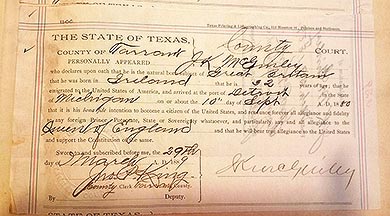 THE STATE OF TEXAS,
COUNTY OF Tarrant County COURT.
PERSONALLY APPEARED J. K. McGinley
who declares upon oath that he is the natural born subject of Great Britain
that he was born in Ireland he is 32 years of age; that he
emigrated to the United States, and on or arrived at the port of Detroit in the State
of Michigan on or about the 10th day of Sept A. D. 1880
that it is bona fide intention to become a citizen of the United States, and renounce forever all allegiance and fidelity
to any foreign Prince, Potentate, State or Sovereignty whatsoever, and particularly any and all allegiance to the
Queen of England and that he will bear true allegiance to the United States
and support the Constitution of the same.
Sworn to and subscribed before me, the 29th
day of March A. D. 1889
Jno. P. King
County Clerk Tarrant County
By Deputy.
THE STATE OF TEXAS